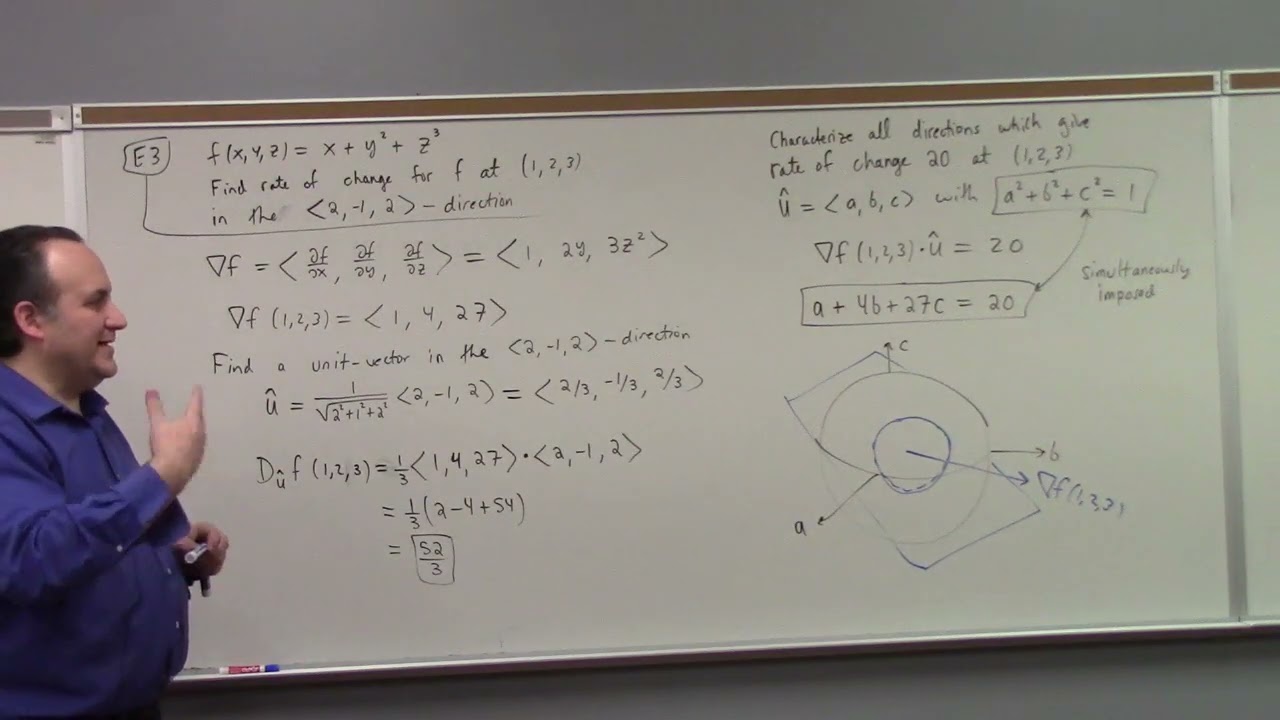 E3 f(x,y,z) = x + y² + z³
Find rate of change for f at (1,2,3)
in the <2,-1,2> - direction
∇f = <∂f/∂x, ∂f/∂y, ∂f/∂z> = <1, 2y, 3z²>
∇f (1,2,3) = <1, 4, 27>
Find a unit-vector in the <2,-1,2> - direction
û = 1/√(2²+1²+2²) <2,-1,2> = <2/3, -1/3, 2/3>
D_û f (1,2,3) = 1/3 <1,4,27> • <2,-1,2>
= 1/3 (2-4+54)
= 52/3
Characterize all directions which give
rate of change 20 at (1,2,3)
û = <a,b,c> with a² + b² + c² = 1
∇f (1,2,3) • û = 20
simultaneously
imposed
a + 4b + 27c = 20
c
b
∇f(1,2,3)
a